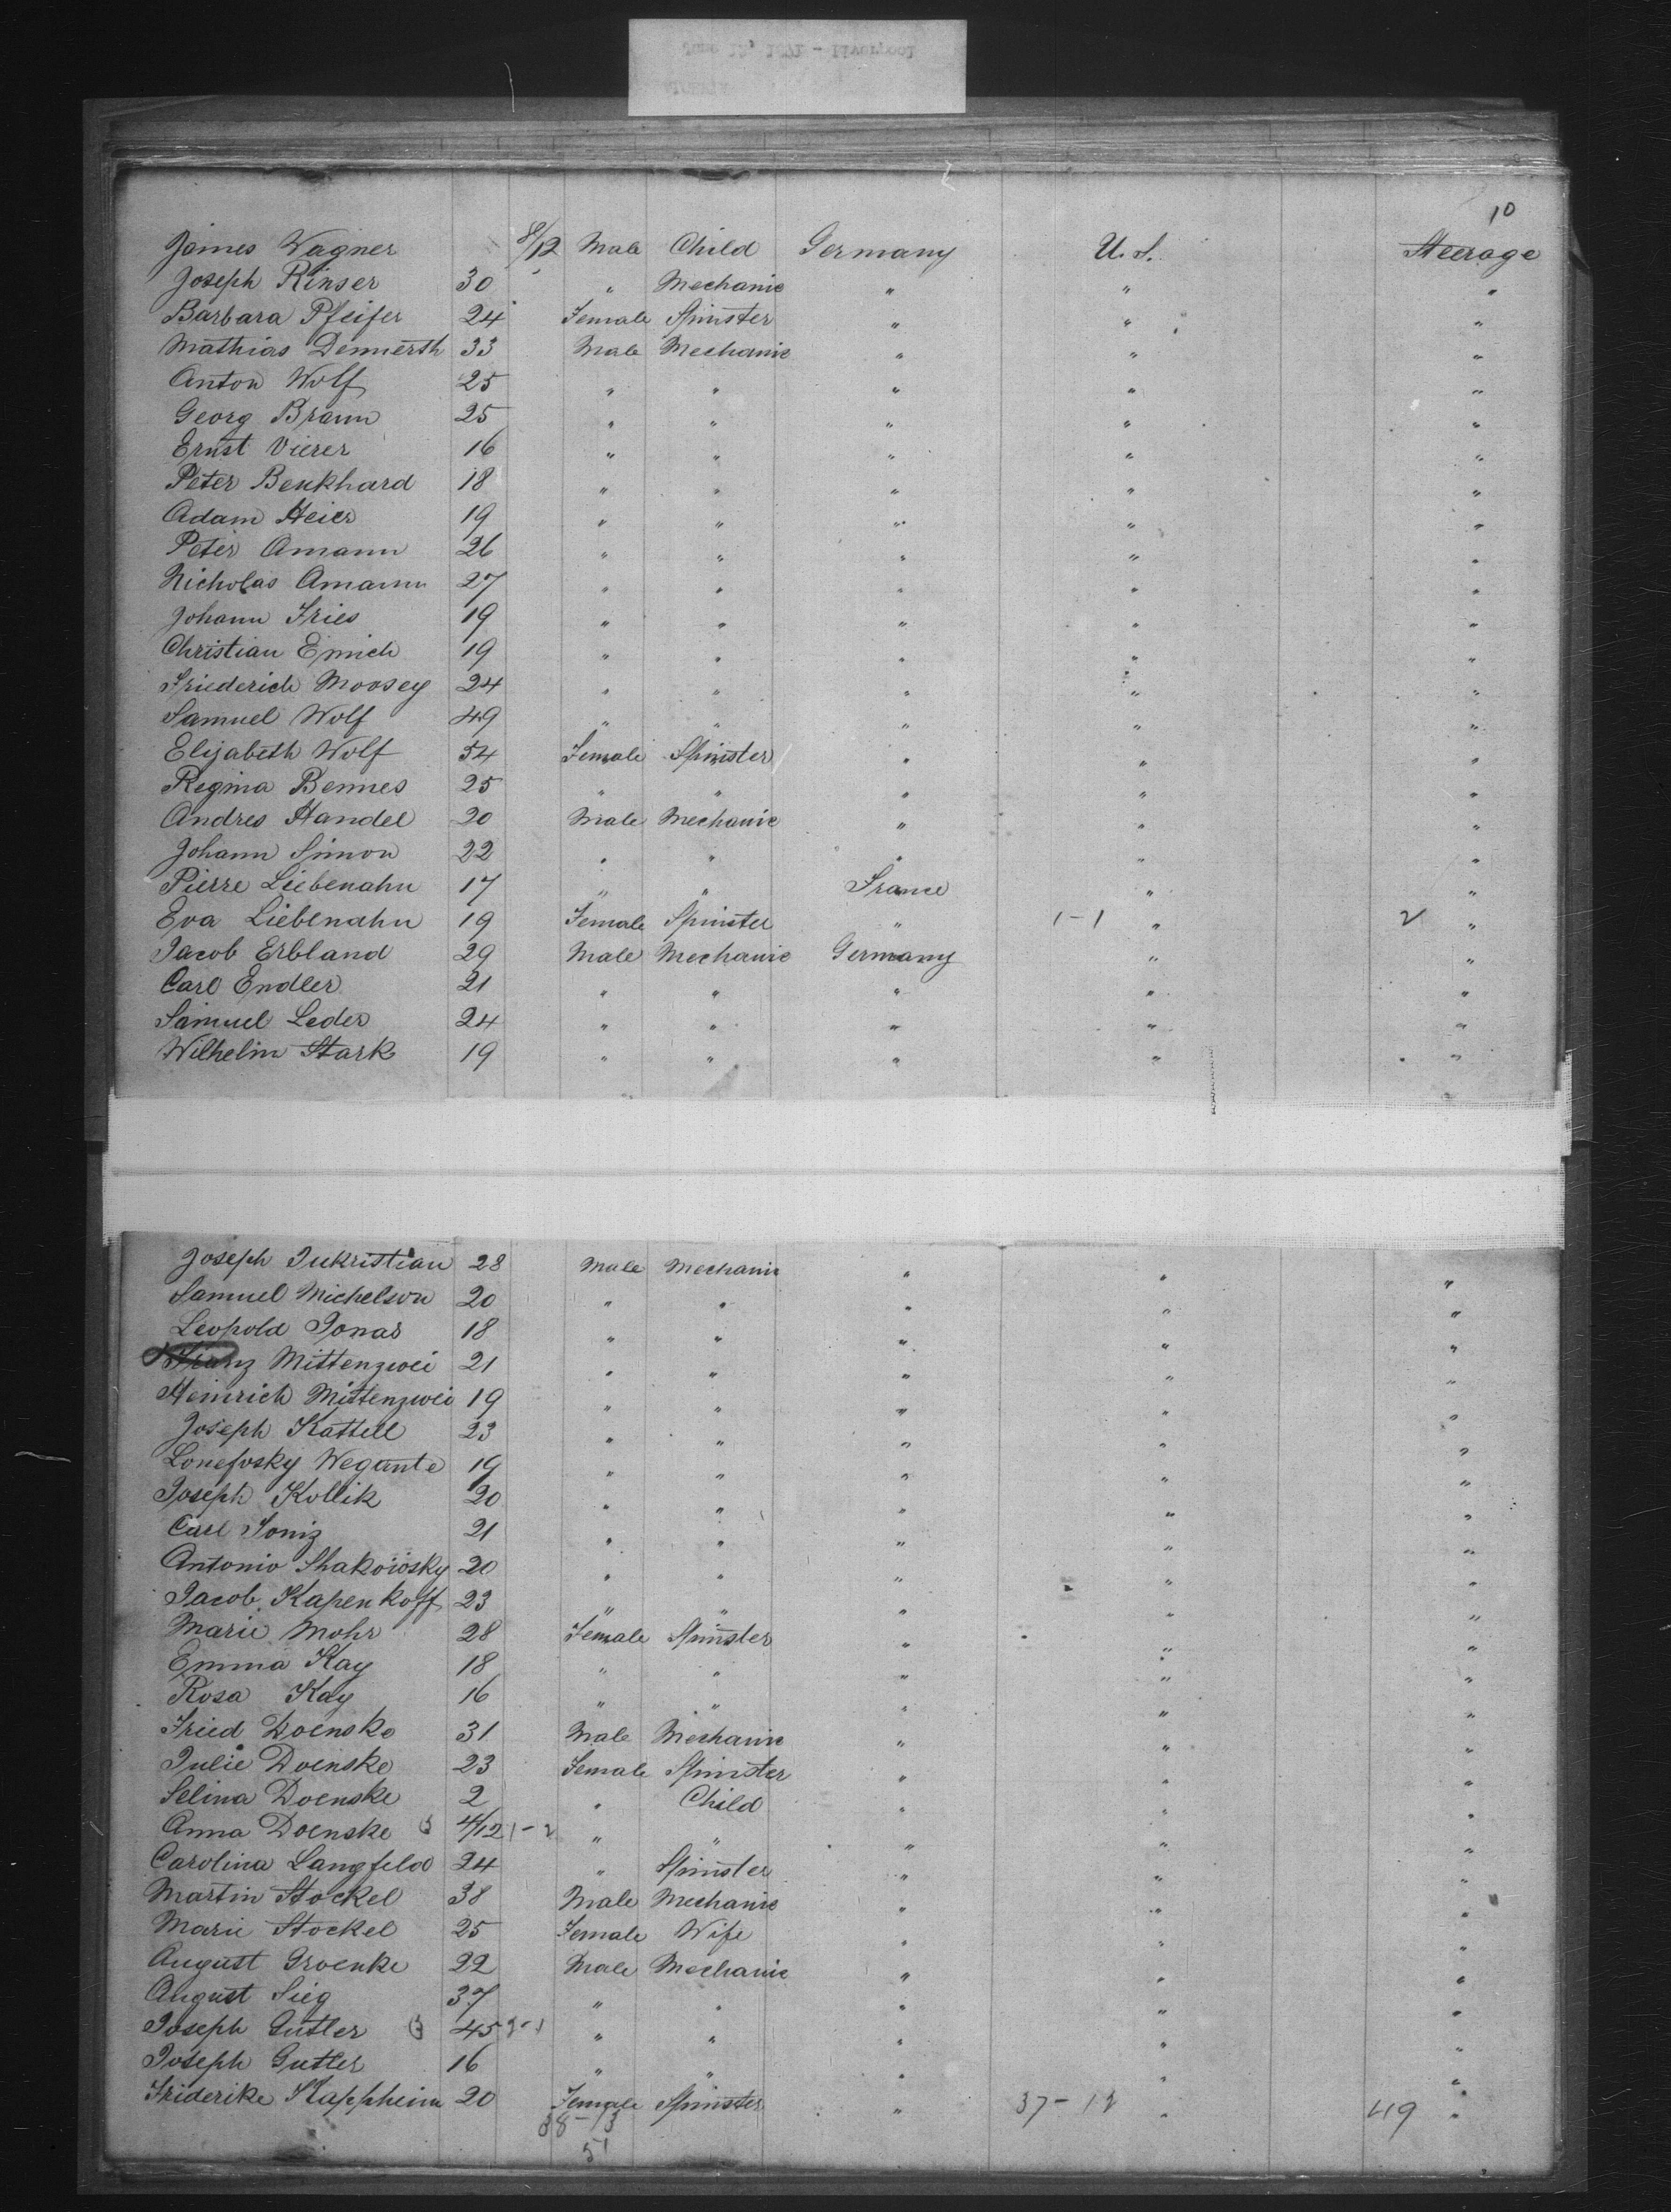 June 13, 1871 - Liverpool
10
James Wagner 8/12 Male Child Germany U.S. Steerage
Joseph Rinser 30 " Mechanic " " "
Barbara Pfeifer 24 Female Spinster " " "
Mathias Dennerth 33 Male Mechanic " " "
Anton Wolf 25 " " " " "
Georg Braun 25 " " " " "
Ernst Vierer 16 " " " " "
Peter Benkhard 18 " " " " "
Adam Heier 19 " " " " "
Peter Amann 26 " " " " "
Nicholas Amann 27 " " " " "
Johann Fries 19 " " " " "
Christian Emich 19 " " " " "
Friederich Moosey 24 " " " " "
Samuel Wolf 49 " " " " "
Elizabeth Wolf 54 Female Spinster " " "
Regina Bennes 25 " " " " "
Andres Handel 20 Male Mechanic " " "
Johann Simon 22 " " " " "
Pierre Liebenahn 17 " " France " "
Eva Liebenahn 19 Female Spinster " 1-1 " 2 "
Jacob Erbland 29 Male Mechanic Germany " "
Carl Endler 21 " " " " "
Samuel Leder 24 " " " " "
Wilhelm Stark 19 " " " " "
Joseph Jukristian 28 Male Mechanic " " "
Samuel Michelson 20 " " " " "
Leopold Jonas 18 " " " " "
Franz Mittenzwei 21 " " " " "
Heinrich Mittenzwei 19 " " " " "
Joseph Kattell 23 " " " " "
Wegunte 19 " " " " "
Joseph Kollik 20 " " " " "
Carl 21 " " " " "
Antonio 20 " " " " "
Jacob Kapenkoff 23 " " " " "
Marie Mohr 28 Female Spinster " " "
Emma Kay 18 " " " " "
Rosa Kay 16 " " " " "
Fried Doenske 31 Male Mechanic " " "
Julie Doenske 23 Female Spinster " " "
Selina Doenske 2 " Child " " "
Anna Doenske 4/12 1-2 " " " " "
Carolina Langfeld 24 " Spinster " " "
Martin Stockel 38 Male Mechanic " " "
Marie Stockel 25 Female Wife " " "
August Groenke 22 Male Mechanic " " "
August Sieg 37 " " " " "
Joseph Gutler 45 " " " " "
Joseph Gutler 16 " " " " "
Friderike Stappheim 20 Female Spinster " 37-12 " 49 "
38-13
51